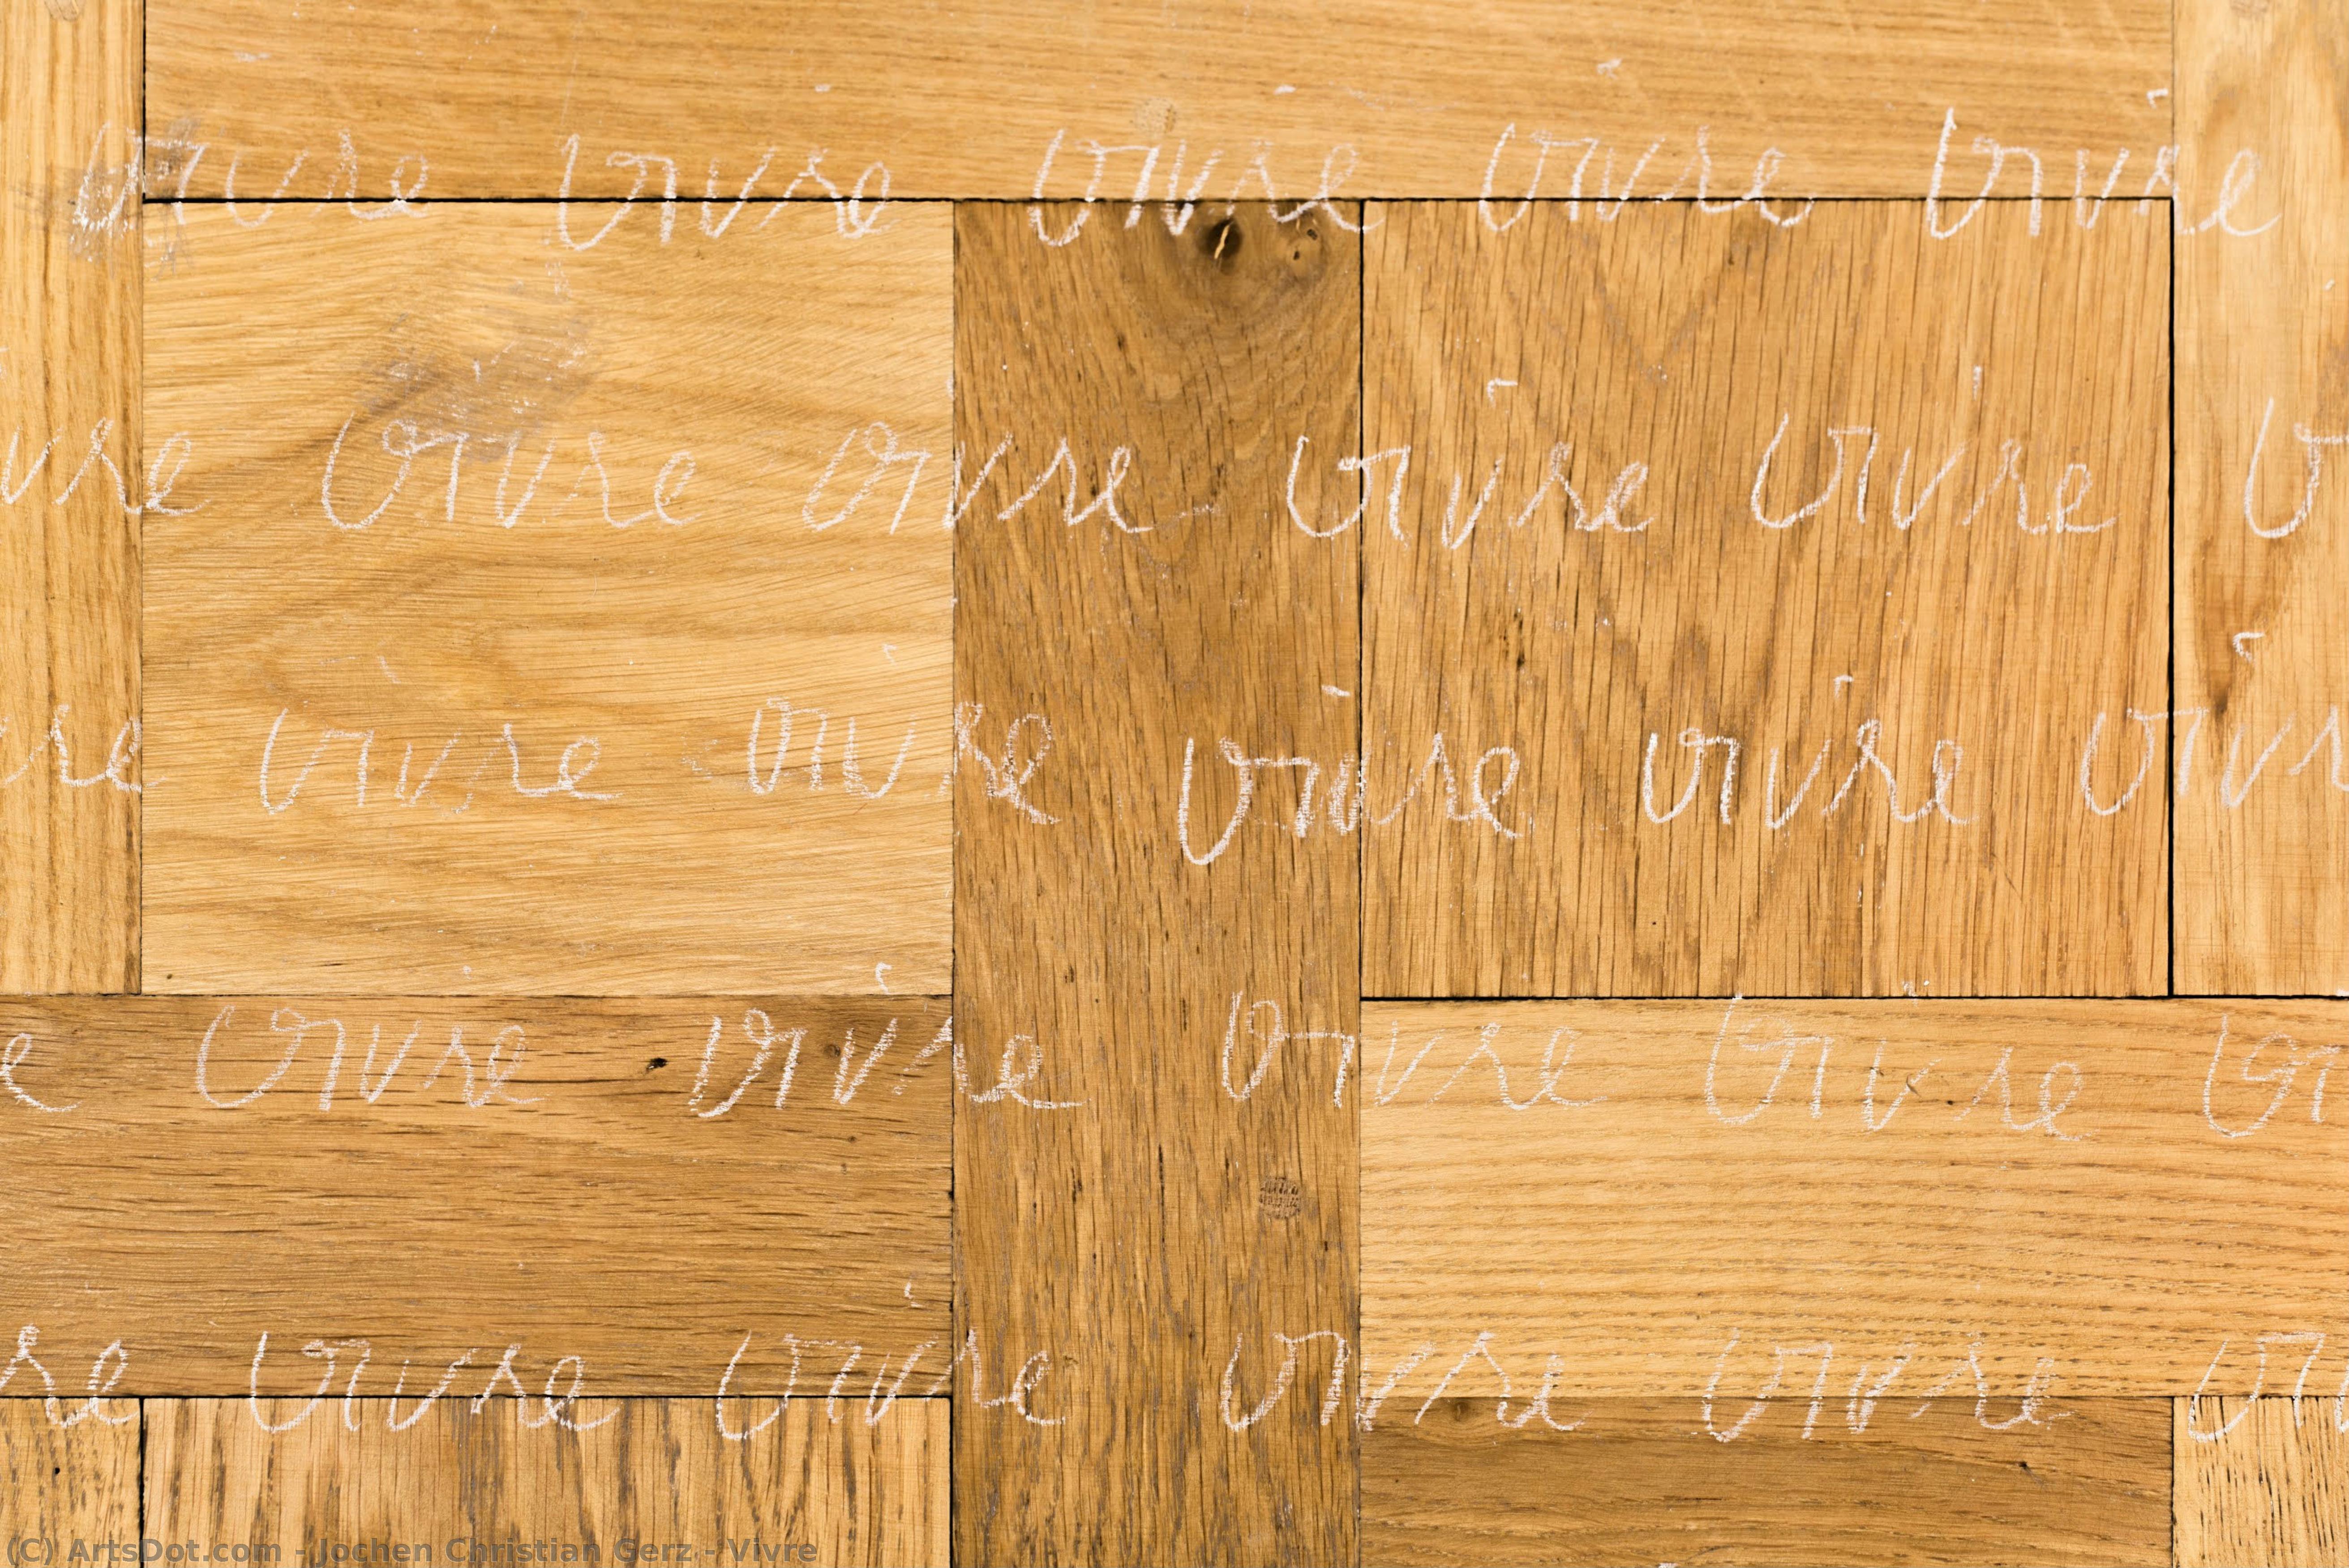 vivre vivre vivre vivre vivre
vre vivre vivre vivre vivre v
vre vivre vivre vivre vivre vivr
e vivre vivre vivre vivre vi
re vivre vivre vivre vivre viv
(C) ArtsDot.com - Jochen Christian Gerz - Vivre